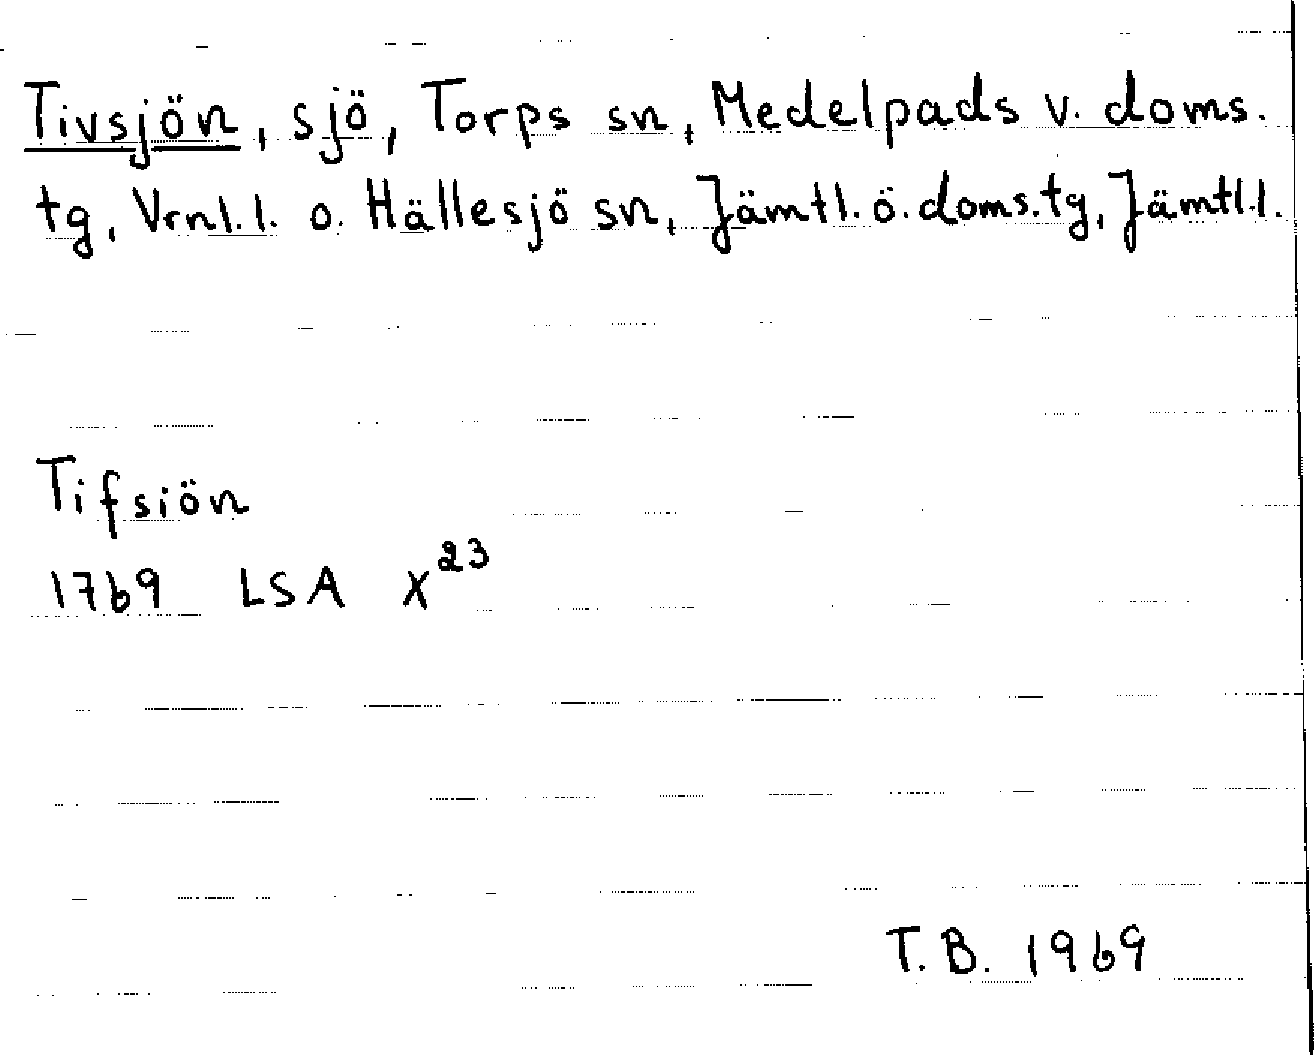 Tivsjön, sjö, Torps sn, Medelpads v. doms.
tg, Vrnl.l. o. Hällesjö sn, Jämtl. ö. doms.tg, Jämtl.l.
Tifsiön
1769 LSA X23
T.B. 1969